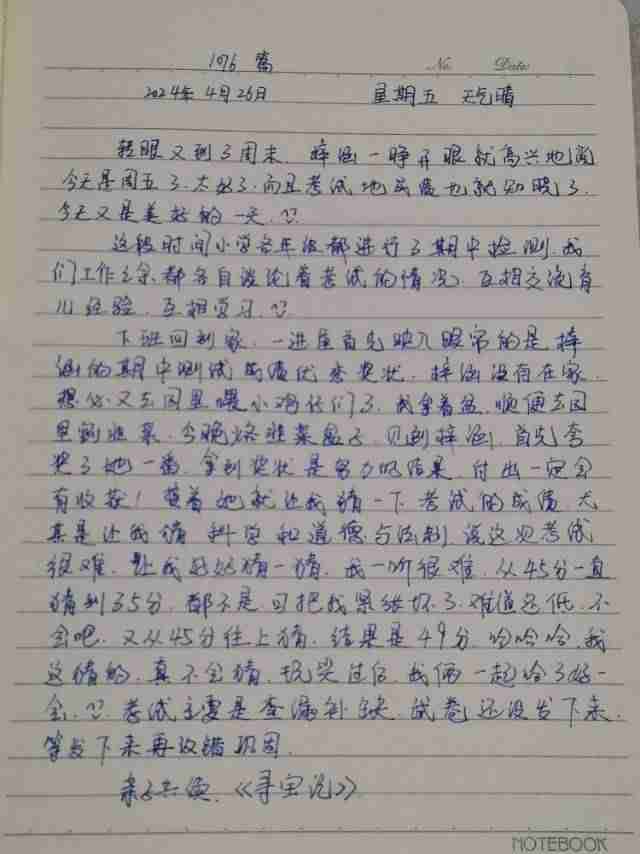 176 篇
No. Date.
2024年 4月26日 星期五 天气晴
转眼又到了周末。梓涵一睁开眼就高兴地说
今天是周五了。太好了。而且考试地成绩也就知晓了。
今天又是美好的一天。
这段时间小学各年级都进行了期中检测。我
们工作之余都各自谈论着考试的情况。互相交流育
儿经验。互相学习。
下班回到家。一进屋首先映入眼帘的是梓
涵的期中测试成绩优秀奖状。梓涵没有在家。
想必又去园里喂小鸡仔们了。我拿着盆。顺便去园
里割韭菜。今晚烙韭菜盒子。见到梓涵。首先夸
奖了她一番。拿到奖状是努力的结果。付出一定会
有收获！接着她就让我猜一下考试的成绩。尤
其是让我猜 科学和道德与法制。说这次考试
很难。让我好好猜一猜。我一听很难。从45分一直
猜到35分。都不是。可把我累坏了。难道还低。不
会吧。又从45分往上猜。结果是49分。哈哈哈。我
这猜的。真不会猜。玩笑过后。我俩一起哈了好一
会。考试主要是查漏补缺。试卷还没发下来。
等发下来再改错巩固。
亲子共读《寻宝记》
NOTEBOOK